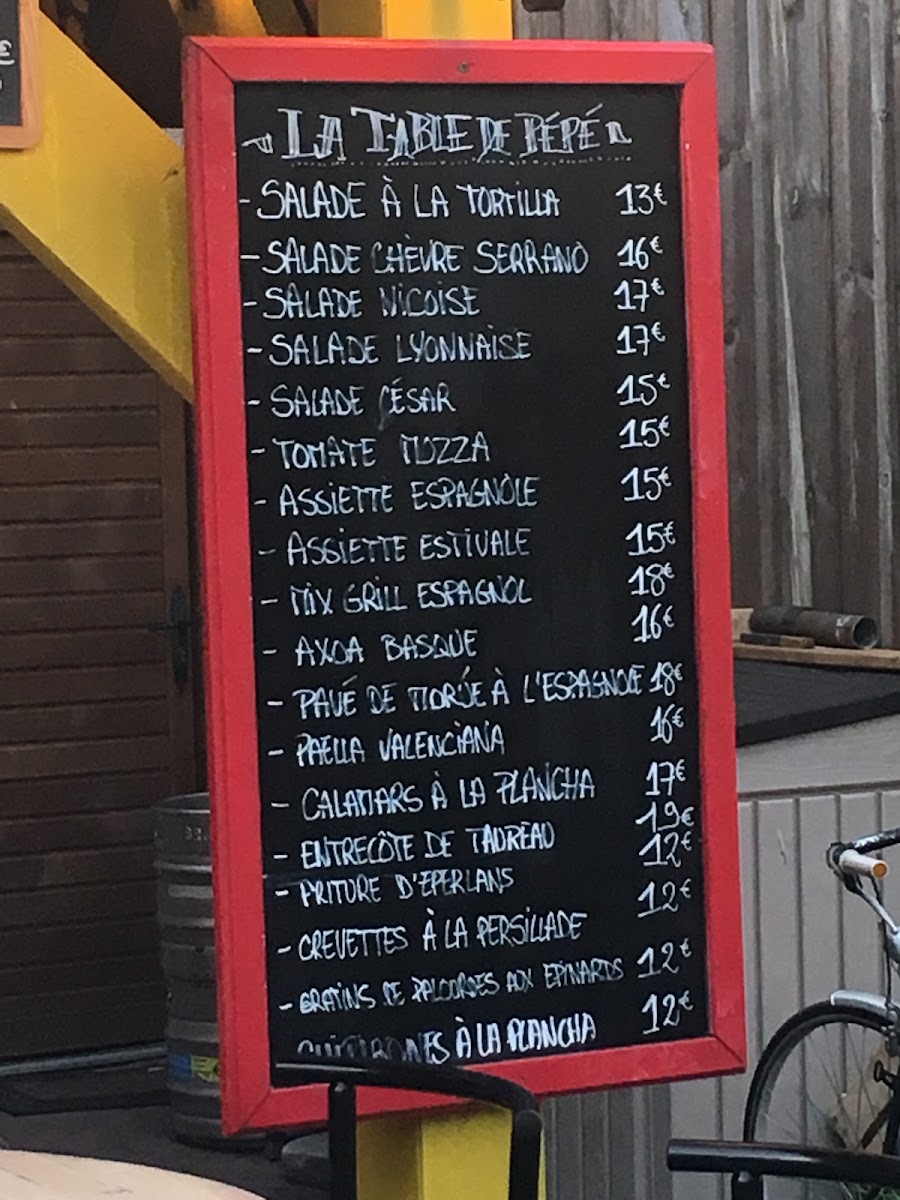 €
LA TABLE DE PÉPÉ
- SALADE À LA TORTILLA 13€
- SALADE CHÈVRE SERRANO 16€
- SALADE NICOISE 17€
- SALADE LYONNAISE 17€
- SALADE CÉSAR 15€
- TOMATE MOZZA 15€
- ASSIETTE ESPAGNOLE 15€
- ASSIETTE ESTIVALE 15€
- MIX GRILL ESPAGNOL 18€
- AXOA BASQUE 16€
- PAVÉ DE MORUE À L'ESPAGNOLE 18€
- PAELLA VALENCIANA 16€
- CALAMARS À LA PLANCHA 17€
- ENTRECÔTE DE TAUREAU 19€
- FRITURE D'EPERLANS 12€
- CREVETTES À LA PERSILLADE 12€
- GRATINS DE PALOURDES AUX EPINARDS 12€
À LA PLANCHA 12€